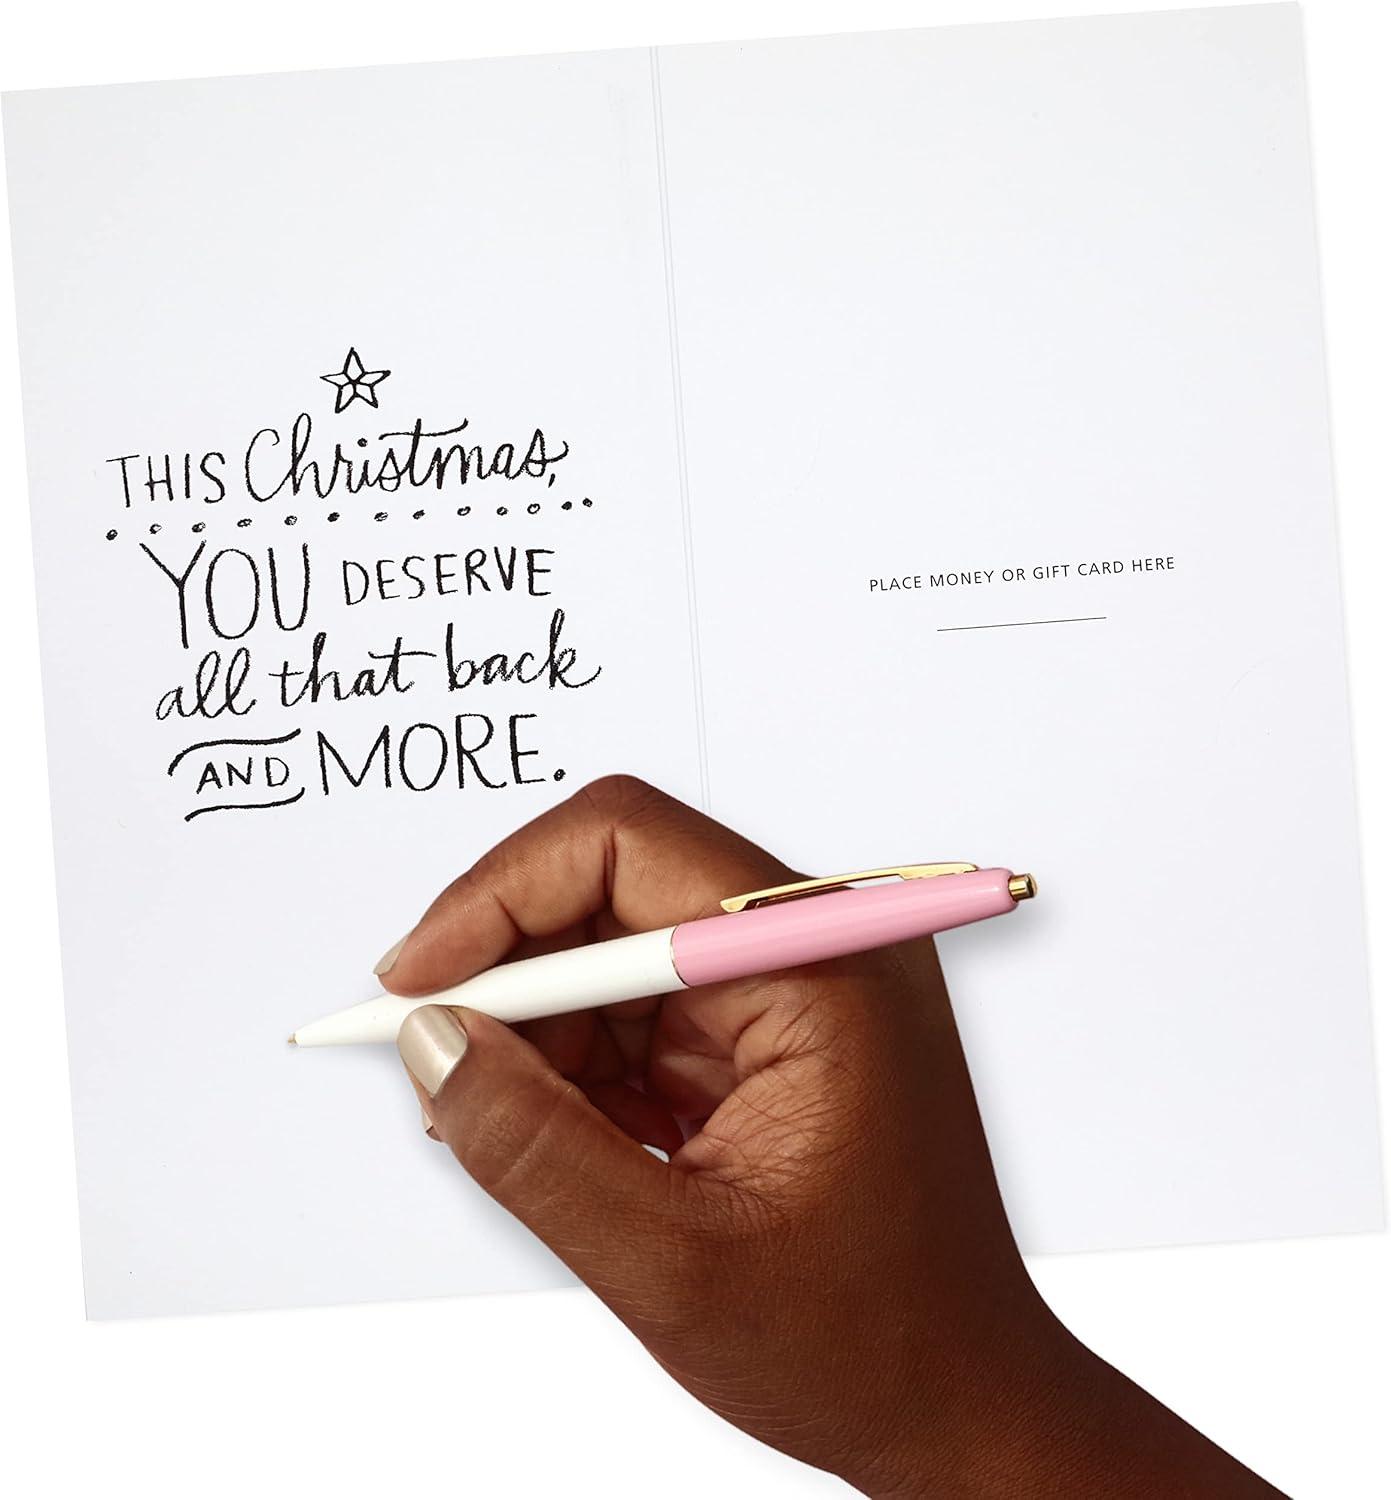 THIS Christmas,
YOU DESERVE
all that back
AND MORE.
PLACE MONEY OR GIFT CARD HERE